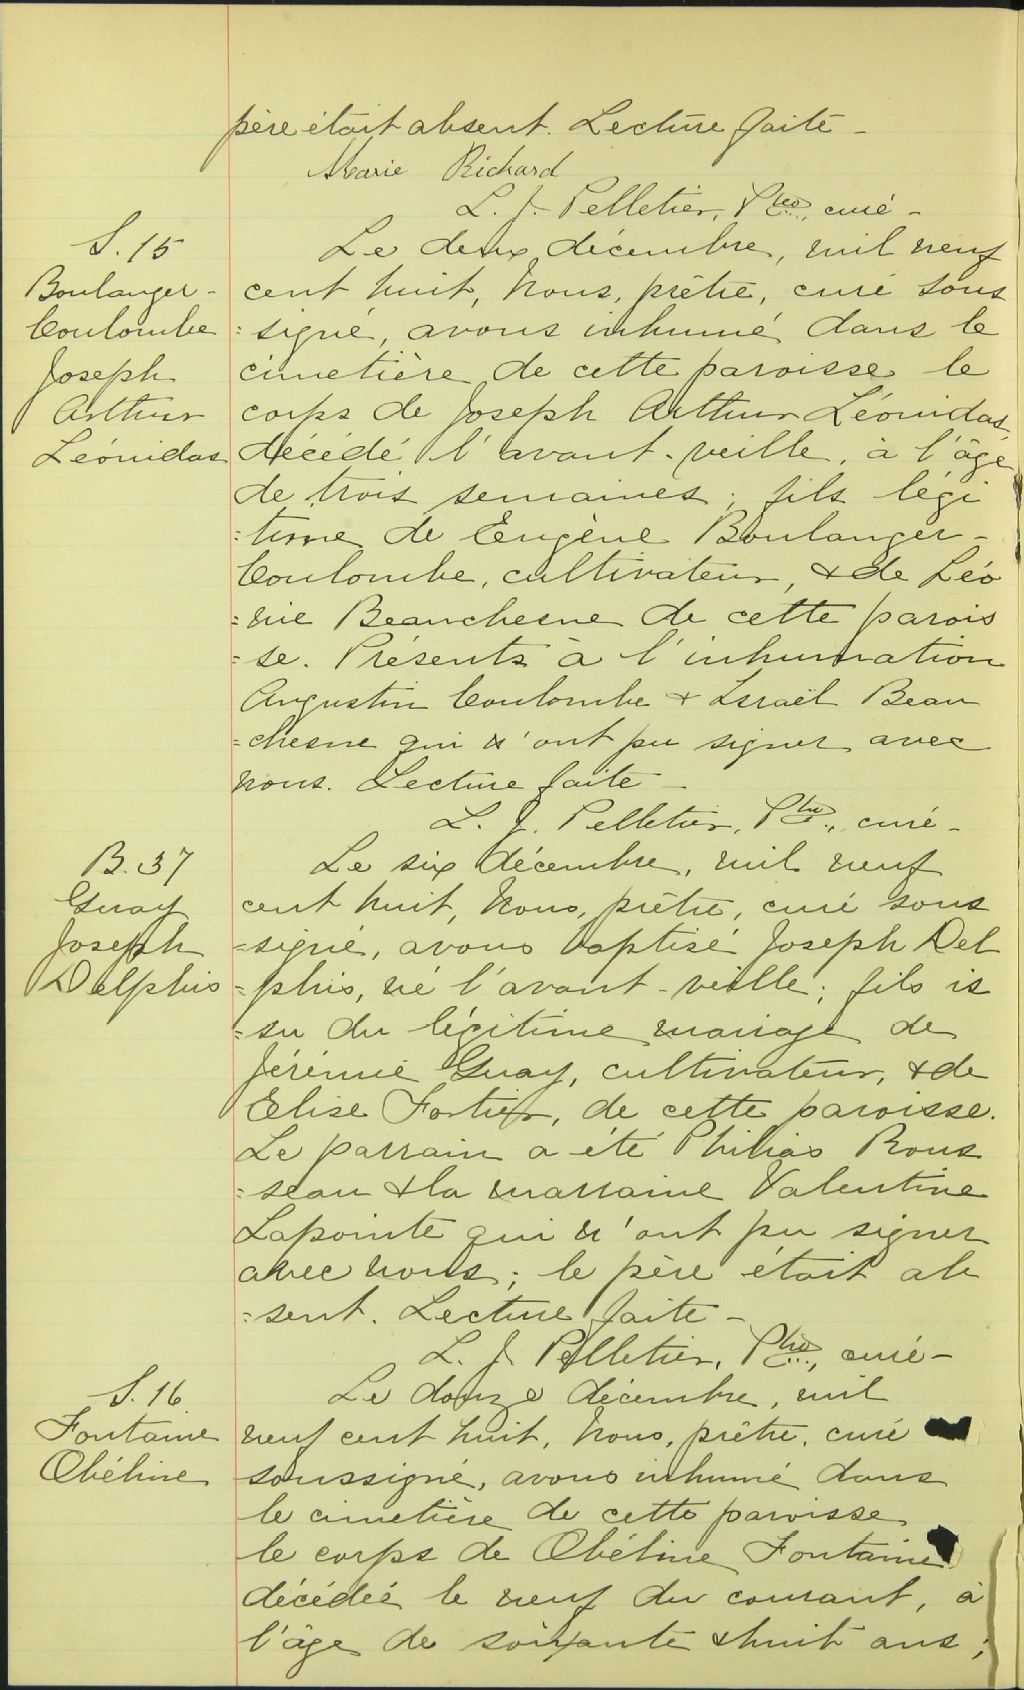 père était absent. Lecture faite -
Marie Richard
L. J. Pelletier, Ptre, curé -
S. 15
Boulanger-
Coulombe
Joseph
Arthur
Léonidas
Le deux décembre, mil neuf
cent huit, Nous, prêtre, curé sous
=signé, avons inhumé dans le
cimetière de cette paroisse le
corps de Joseph Arthur Léonidas
décédé l'avant-veille, à l'âge
de trois semaines; fils légi
=time de Eugène Boulanger-
Coulombe, cultivateur, & de Léo
=nie Beauchesne de cette parois
=se. Présents à l'inhumation
Augustin Coulombe & Israël Beau
=chesne qui n'ont pu signer avec
nous. Lecture faite -
L. J. Pelletier, Ptre, curé -
B. 37
Guay
Joseph
Delphis
Le six décembre, mil neuf
cent huit, Nous, prêtre, curé sous
=signé, avons baptisé Joseph Del
=phis, né l'avant-veille; fils is
=su du légitime mariage de
Jérémie Guay, cultivateur, & de
Elise Fortier, de cette paroisse.
Le parrain a été Philias Rous
=seau & la marraine Valentine
Lapointe qui n'ont pu signer
avec nous; le père était ab
=sent. Lecture faite -
L. J. Pelletier, Ptre, curé -
S. 16
Fontaine
Obéline
Le douze décembre, mil
neuf cent huit, Nous, prêtre, curé
soussigné, avons inhumé dans
le cimetière de cette paroisse
le corps de Obéline Fontaine
décédée le neuf du courant, à
l'âge de soixante & huit ans;